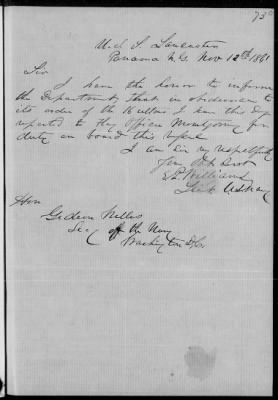 73
U.S.S. Lancaster
Panama N.G. Nov. 12th 1861
Sir
I have the honor to inform
the Department, that in obedience to
its order of the I have this day
reported to Flag Officer Montgomery for
duty on board this vessel
I am Sir very respectfully
Your Obt Servt
E.P. Williams
Lieut. U.S. Navy
Hon
Gideon Welles
Secy of the Navy
Washington D.C.